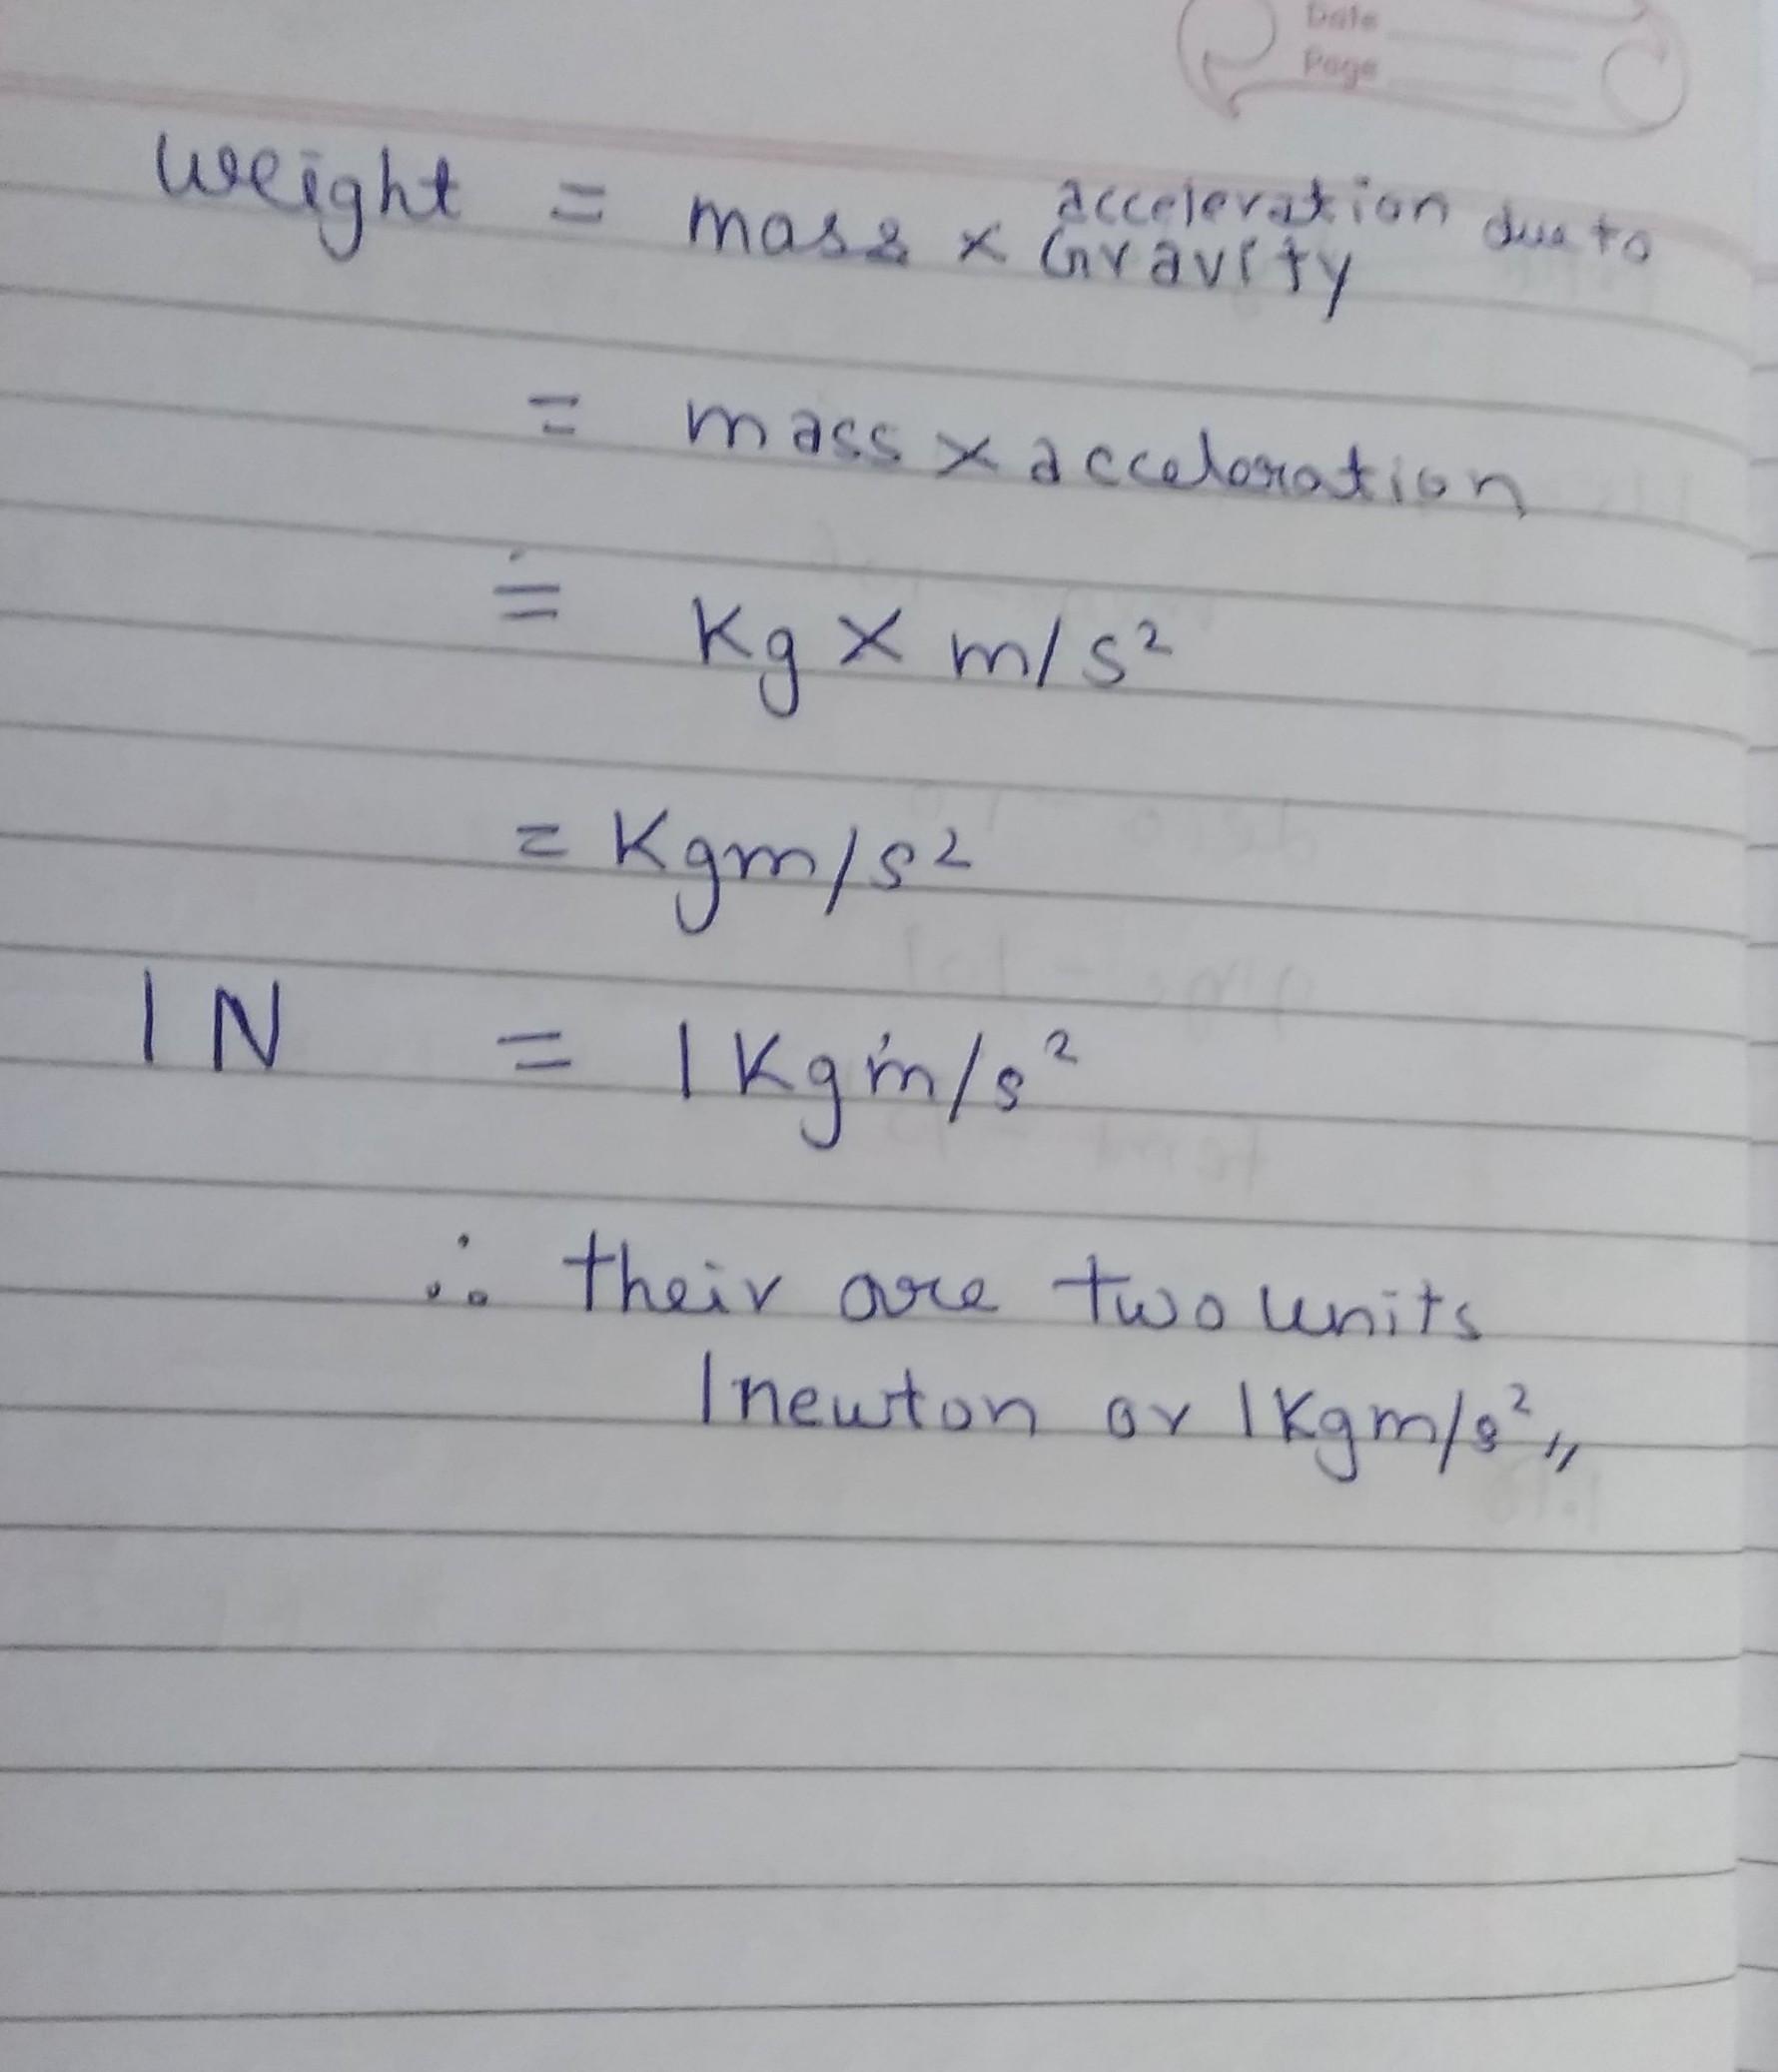 Date
Page
weight = mass × acceleration due to
Gravity
= mass × acceleration
= Kg × m/s²
= Kgm/s²
1 N = 1 Kgm/s²
∴ their are two units
1 newton or 1 Kgm/s²,,